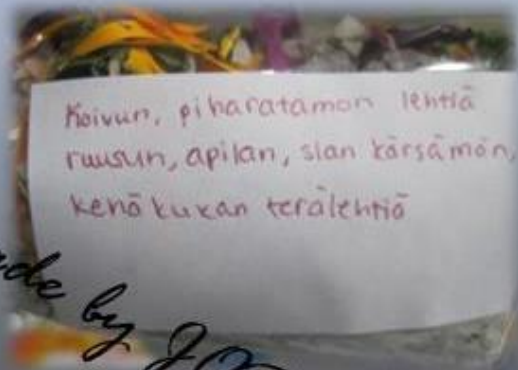 Koivun, piharatamon lehtiä
ruusun, apilan, sian kärsämön,
kehä kukan terälehtiä
made by